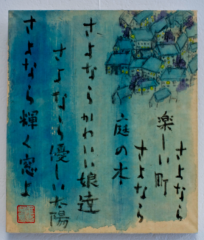 さよなら
楽しい町
さよなら
庭の木
さよならかわいい娘達
さよなら優しい太陽
さよなら輝く窓よ